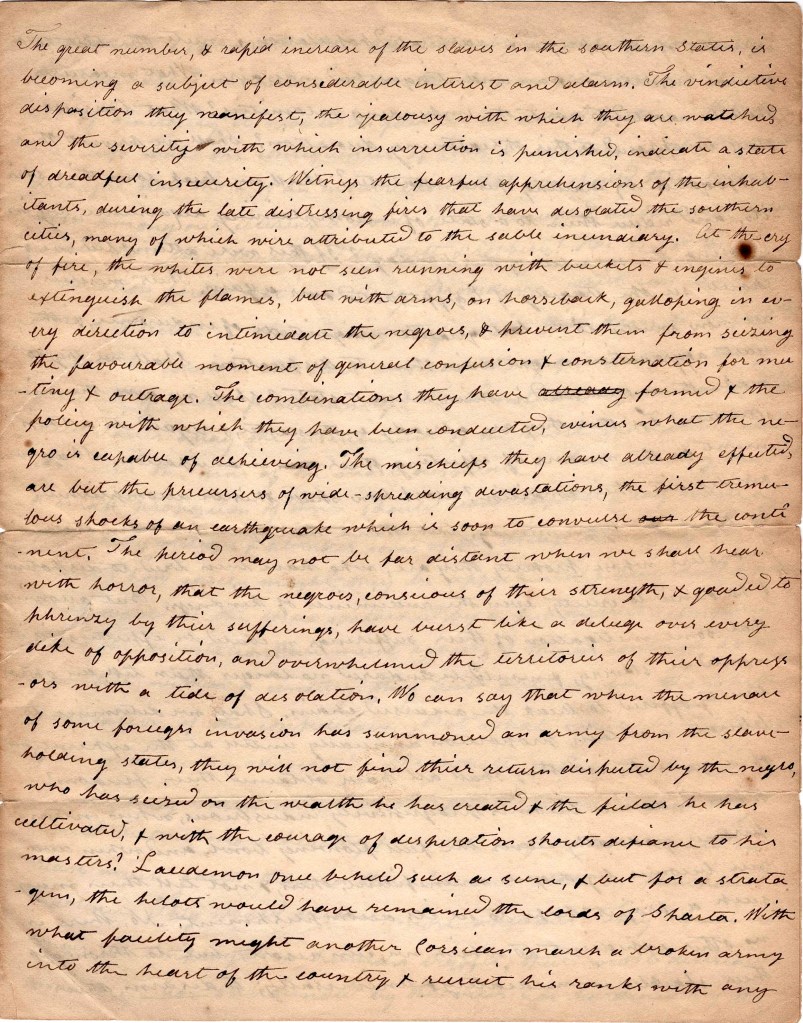 The great number, & rapid increase of the slaves in the southern states, is
becoming a subject of considerable interest and alarm. The vindictive
disposition they manifest, the jealousy with which they are watched
and the severity with which insurrection is punished, indicate a state
of dreadful insecurity. Witness the fearful apprehensions of the inhab-
itants, during the late distressing fires that have desolated the southern
cities, many of which were attributed to the sable incendiary. At the cry
of fire, the whites were not seen running with buckets & engines to
extinguish the flames, but with arms, on horseback, galloping in ev-
ery direction to intimidate the negroes, & prevent them from seizing
the favourable moment of general confusion & consternation for mu
-tiny & outrage. The combinations they have already formed & the
policy with which they have been conducted, evinces what the ne-
gro is capable of achieving. The mischiefs they have already effected,
are but the precursers of wide-spreading devastations, the first tremu-
lous shocks of an earthquake which is soon to convulse our the conti
-nent. The period may not be far distant when we shall hear
with horror, that the negroes, conscious of their strength, & goaded to
phrenzy by their sufferings, have burst like a deluge over every
dike of opposition, and overwhelmed the territories of their oppress
-ors with a tide of desolation. Who can say that when the menace
of some foreign invasion has summoned an army from the slave-
holding states, they will not find their return disputed by the negro,
who has seized on the wealth he has created & the fields he has
cultivated, & with the courage of desperation shouts defiance to his
masters? Lacedemon once beheld such a scene, & but for a strata
-gem, the helots would have remained the lords of Sparta. With
what facility might another Corsican march a broken army
into the heart of the country & recruit his ranks with any